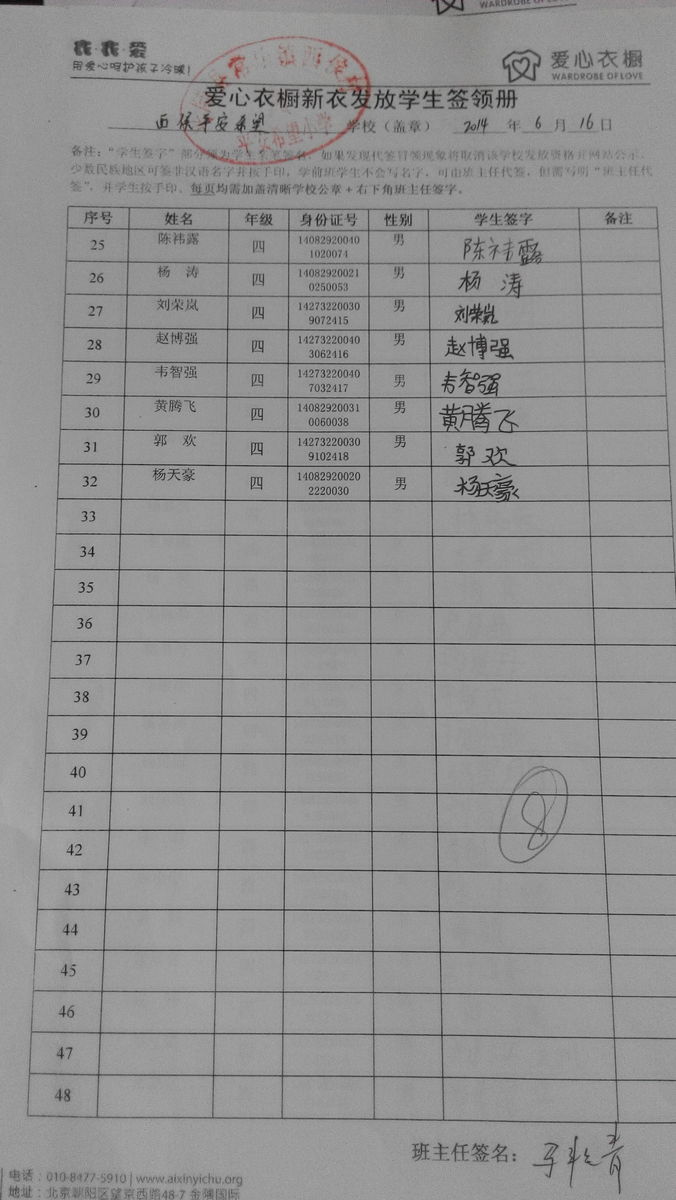 WARDROBE OF LOVE
衣·衣·爱
用爱心呵护孩子冷暖!
爱心衣橱
WARDROBE OF LOVE
爱心衣橱新衣发放学生签领册
学校（盖章） 2014 年 6 月 16 日
如果发现代签冒领现象将取消该学校发放资格并网站公示。
少数民族地区可签非汉语名字并按手印，学前班学生不会写名字，可由班主任代签，但需写明“班主任代
签”，并学生按手印。每页均需加盖清晰学校公章+右下角班主任签字。
序号 姓名 年级 身份证号 性别 学生签字 备注
25 陈祎露 四 140829200401020074 男 陈祎露
26 杨 涛 四 140829200210250053 男 杨 涛
27 刘荣岚 四 142732200309072415 男 刘荣岚
28 赵博强 四 142732200403062416 男 赵博强
29 韦智强 四 142732200407032417 男 韦智强
30 黄腾飞 四 140829200310060038 男 黄腾飞
31 郭 欢 四 142732200309102418 男 郭 欢
32 杨天豪 四 140829200202220030 男 杨天豪
33
34
35
36
37
38
39
40
41
42
43
44
45
46
47
48
8
班主任签名：
电话：010-8477-5910 | www.aixinyichu.org
地址：北京朝阳区望京西路48-7 金隅国际